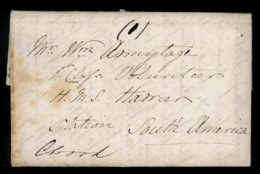 Mr. Wm Armytage
1st Class Volunteer
H.M.S. Harrier
Station South America